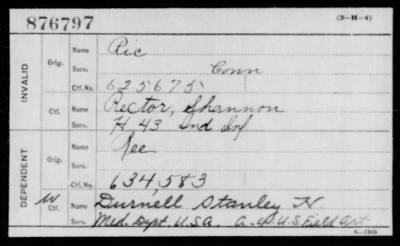 876797
(3-H-4)
INVALID
Orig.
Name Ric
Serv. Conn
Ctf. No. 625675
Ctf.
Name Rector, Shannon
Serv. H 43 Ind Inf
DEPENDENT
Orig.
Name Lee
Serv.
Ctf. No. 634,583
W
Ctf.
Name Durnell Stanley H
Serv. Med. Dept. U.S.A. U.S Field Art
6-1303